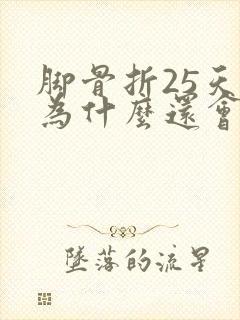 脚骨折25天
為什麼還會
墜落的流星